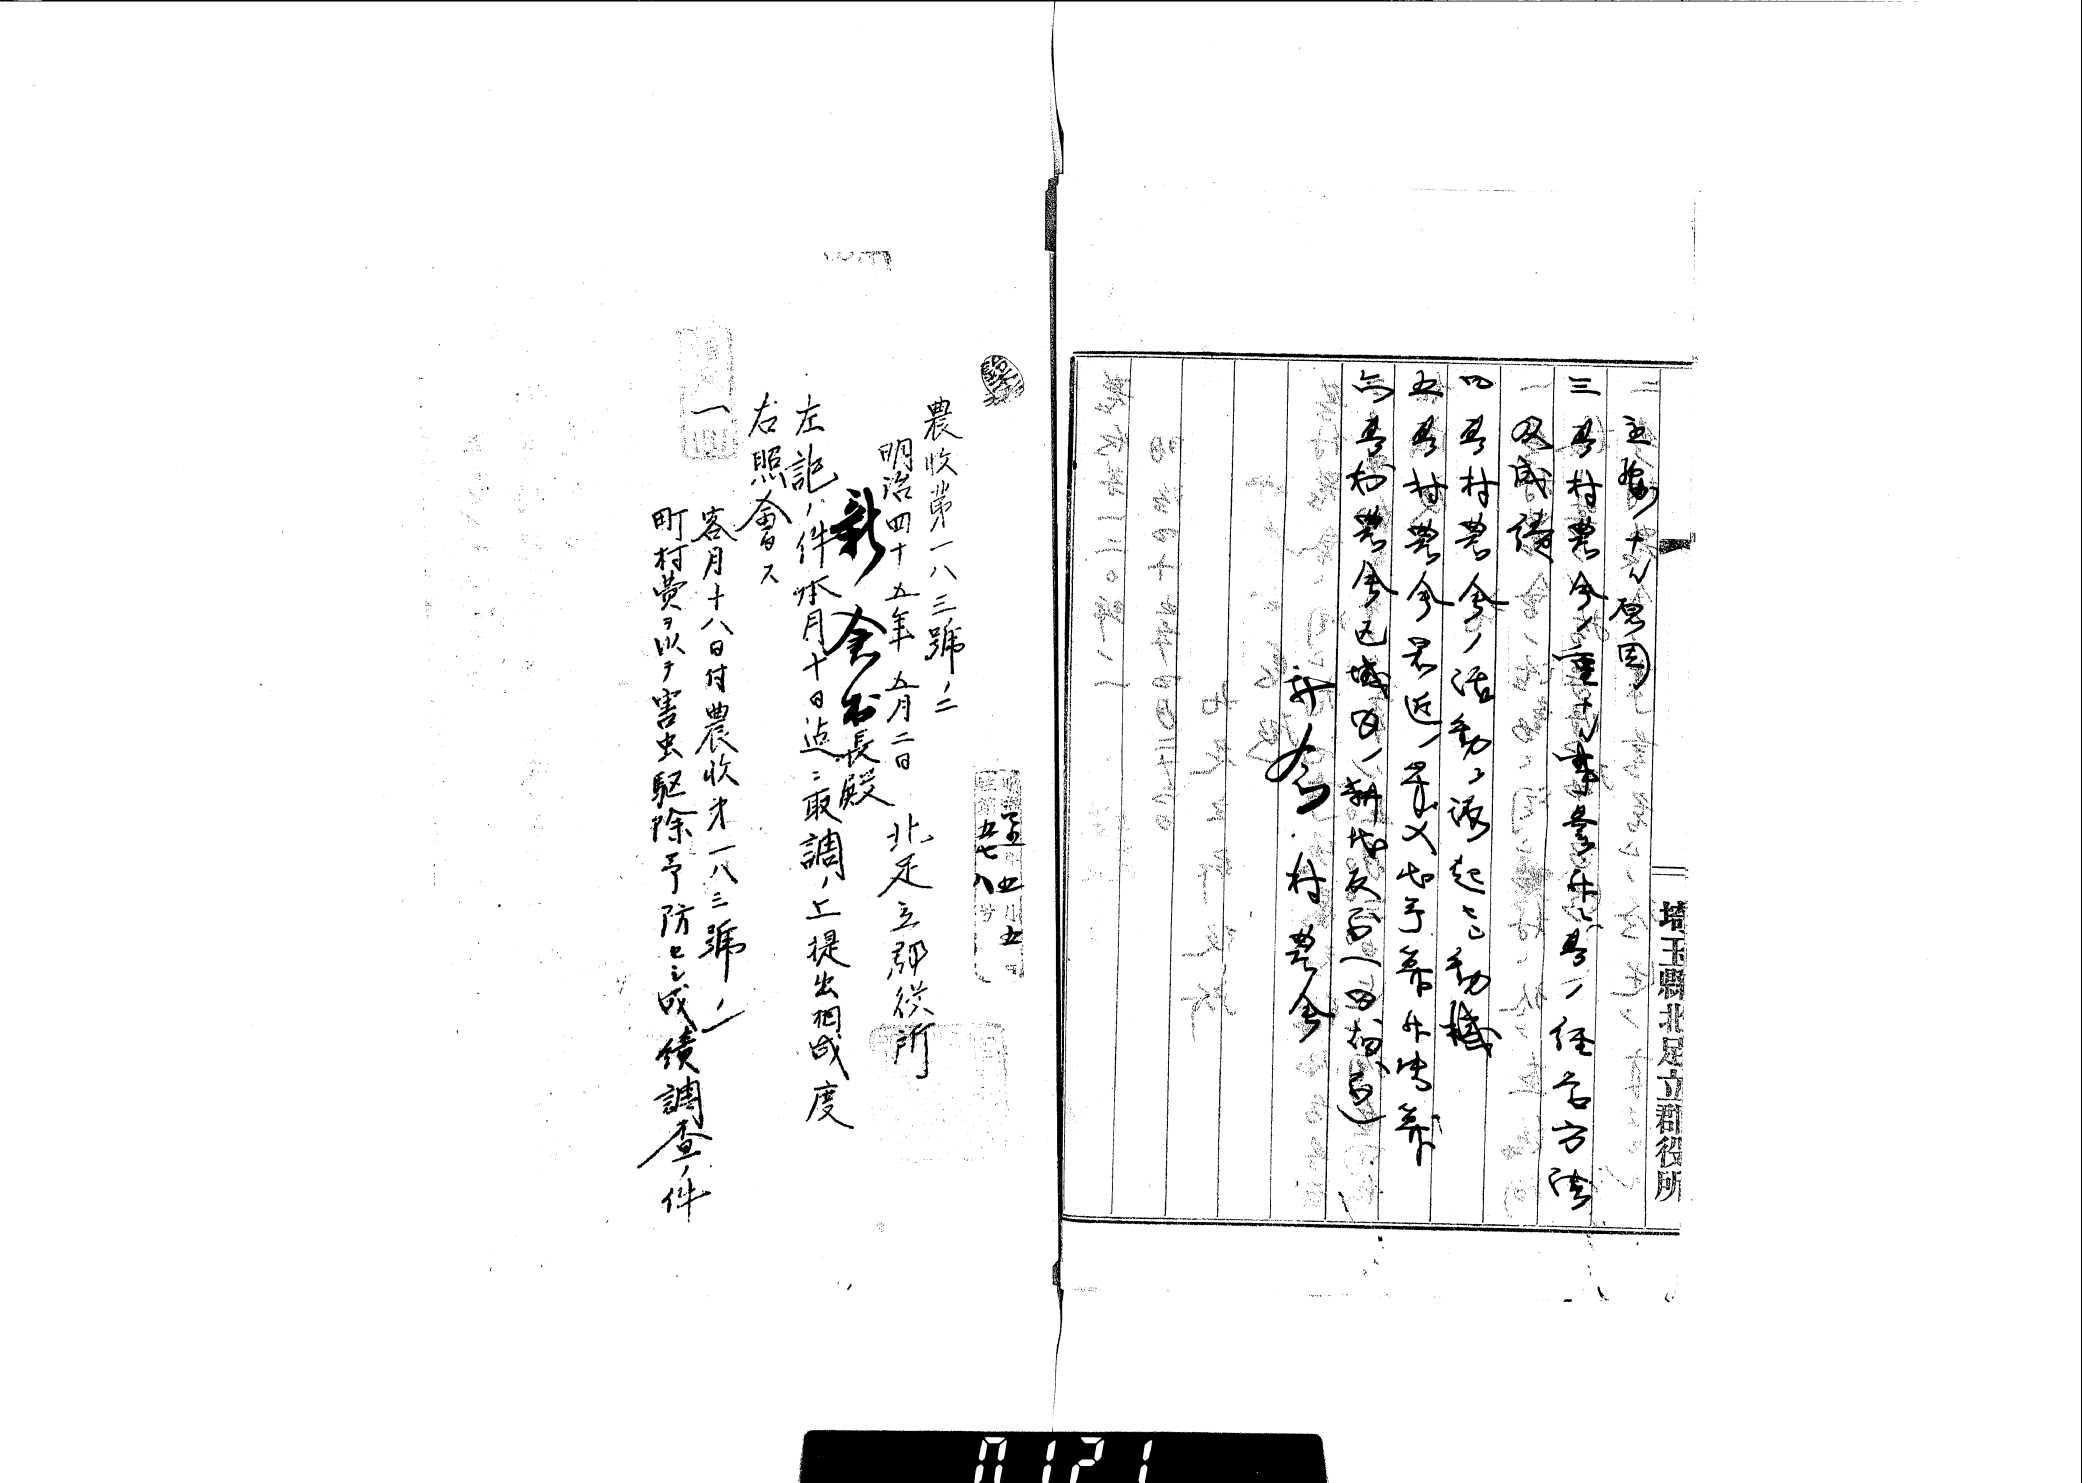 埼玉縣北足立郡役所
主ナル原因
三 其村農会ノ重ナル事業并ニ其ノ経営方法
及成績
四 其村農会ノ活動ヲ喚起セシ動機
五 其村農会最近ノ収支予算并決算
六 其村農会区域内ノ耕地反別(田畑別)
新倉村農会
農收第一八三號ノ二
明治四十五年五月二日 北足立郡役所
新倉村長殿
左記ノ件本月十日迠ニ取調ノ上提出相成度
右照會ス
一 客月十八日付農收第一八三號ノ
町村費ヲ以テ害虫駆除予防セシ成績調査ノ件
0121